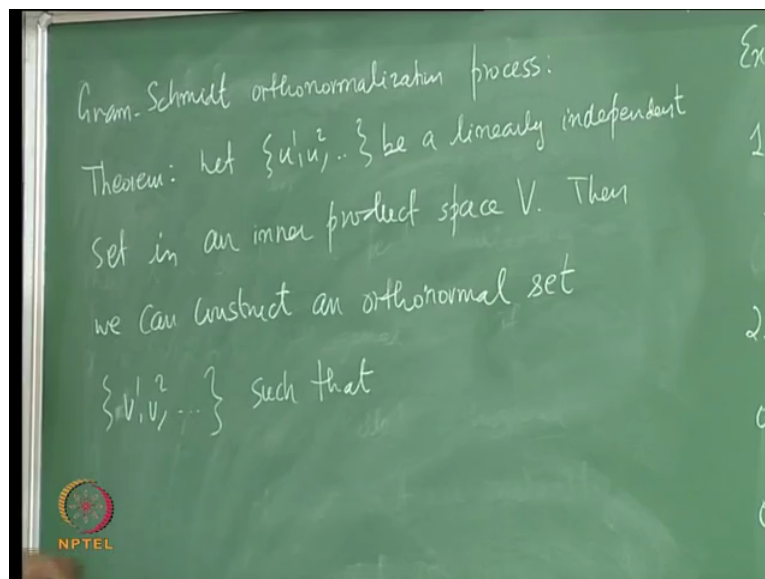 Gram-Schmidt orthonormalization process:
Theorem: Let {u¹, u², ..} be a linearly independent
set in an inner product space V. Then
we can construct an orthonormal set
{v¹, v², ...} such that
Ex
1
2.
NPTEL